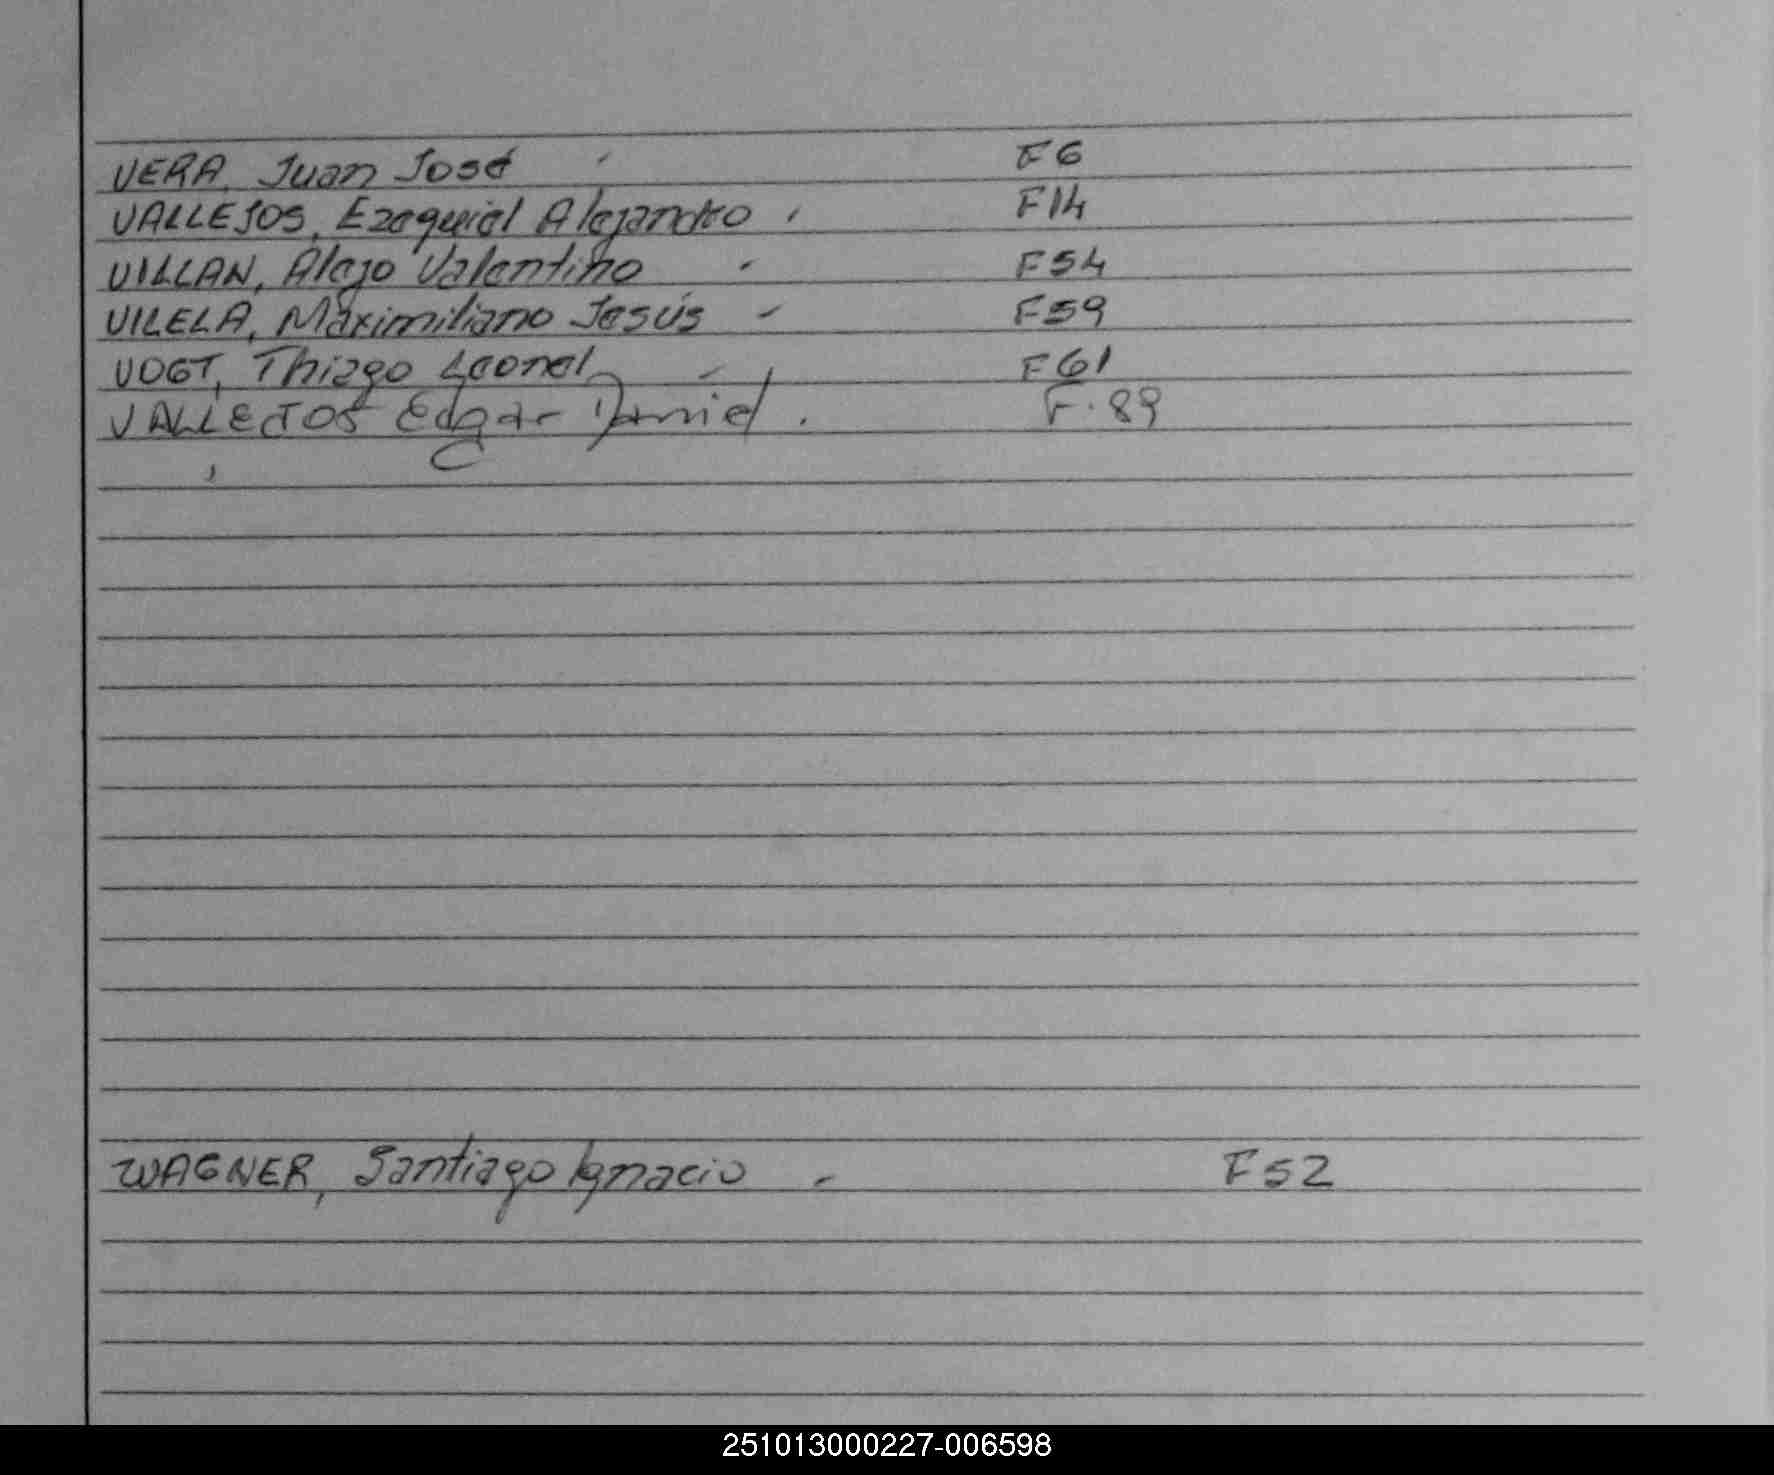 VERA, Juan José - F6
VALLEJOS, Ezequiel Alejandro - F14
VILLAN, Alejo Valentino - F54
VILELA, Maximiliano Jesús - F59
VOGT, Thiago Leonel - F61
VALLEJOS, Edgar Daniel. F.89
WAGNER, Santiago Ignacio - F52
251013000227-006598